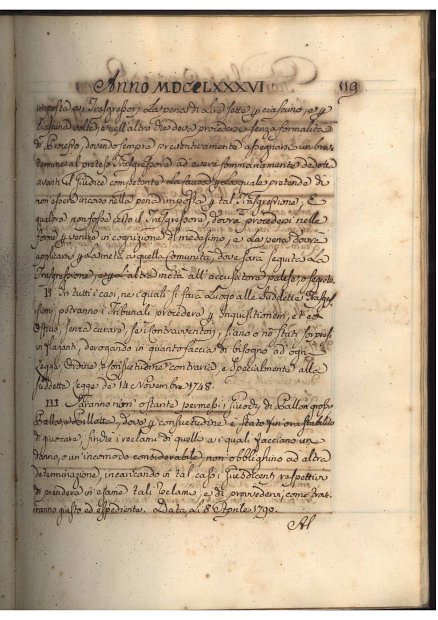 Anno MDCCLXXXVI 119
imposta ai Trasgressori La pena di Lire sette p ciascuno, e p
ciascuna volta, e nell'altro di dover procedere senza formalità
di Processo, dovendo sempre preventivamente assegnare un breve
termine al preteso Trasgressore ad avere sommariamente dedotte
avanti il Giudice competente La causa p La quale pretende di
non essere incorso nella pena imposta p tal Trasgressione, E
qualora non fosse certo il Trasgressore, dovrà procedersi nelle
forme p venire in cognizione di medesimo, e La pena dovrà
applicarsi p La metà a quella Comunità, dove sarà seguita La
Trasgressione, e p L'altra metà all'accusatore palese, o segreto.
II In tutti i casi, ne i quali si farà Luogo alle suddette Trasgres
sioni potranno i Tribunali procedere p Inquisitionem, et ex
Officio, senza curare, se i Contravventori, siano o nò stati sorpresi
in flagranti, derogando in quanto faccia di bisogno ad ogni
Legge Ordine e Consuetudine contraria e specialmente alla
suddetta Legge de 14 Novembre 1748.
III Saranno non ostante permessi i Giuochi di Pallon grosso
Palla, e Pillotta, dove p consuetudine è stato fin ora stabilito
di giuocare, finchè i reclami di quelle a i quali facciano un
danno, o un incomodo considerabile, non obblighino ad altra
determinazione, incaricando in tal caso i Giusdicenti respettivi
di prendere in esame tali reclami, e di provvedere, come
ranno giusto ed espediente. Data li 8 Aprile 1790.
Al